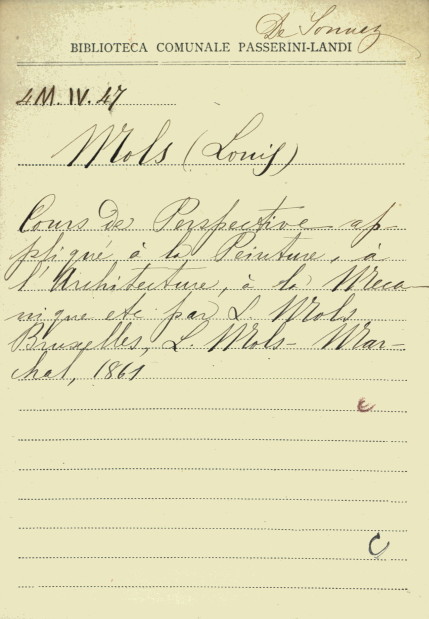 De
BIBLIOTECA COMUNALE PASSERINI-LANDI
4M. IV. 47
Mols (Louis)
Cours de Perspective ap-
pliqué, à la Peinture, à
l'Architecture, à la Meca-
nique etc par L Mols
Bruxelles, L. Mols-Mar-
chal, 1861
C
C